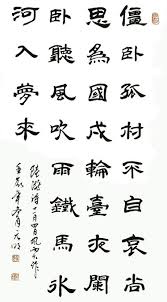 僵臥孤村不自哀尚
思為國戍輪臺夜闌
臥聽風吹雨鐵馬氷
河入夢來
陸游詩十一月四日風雨大作